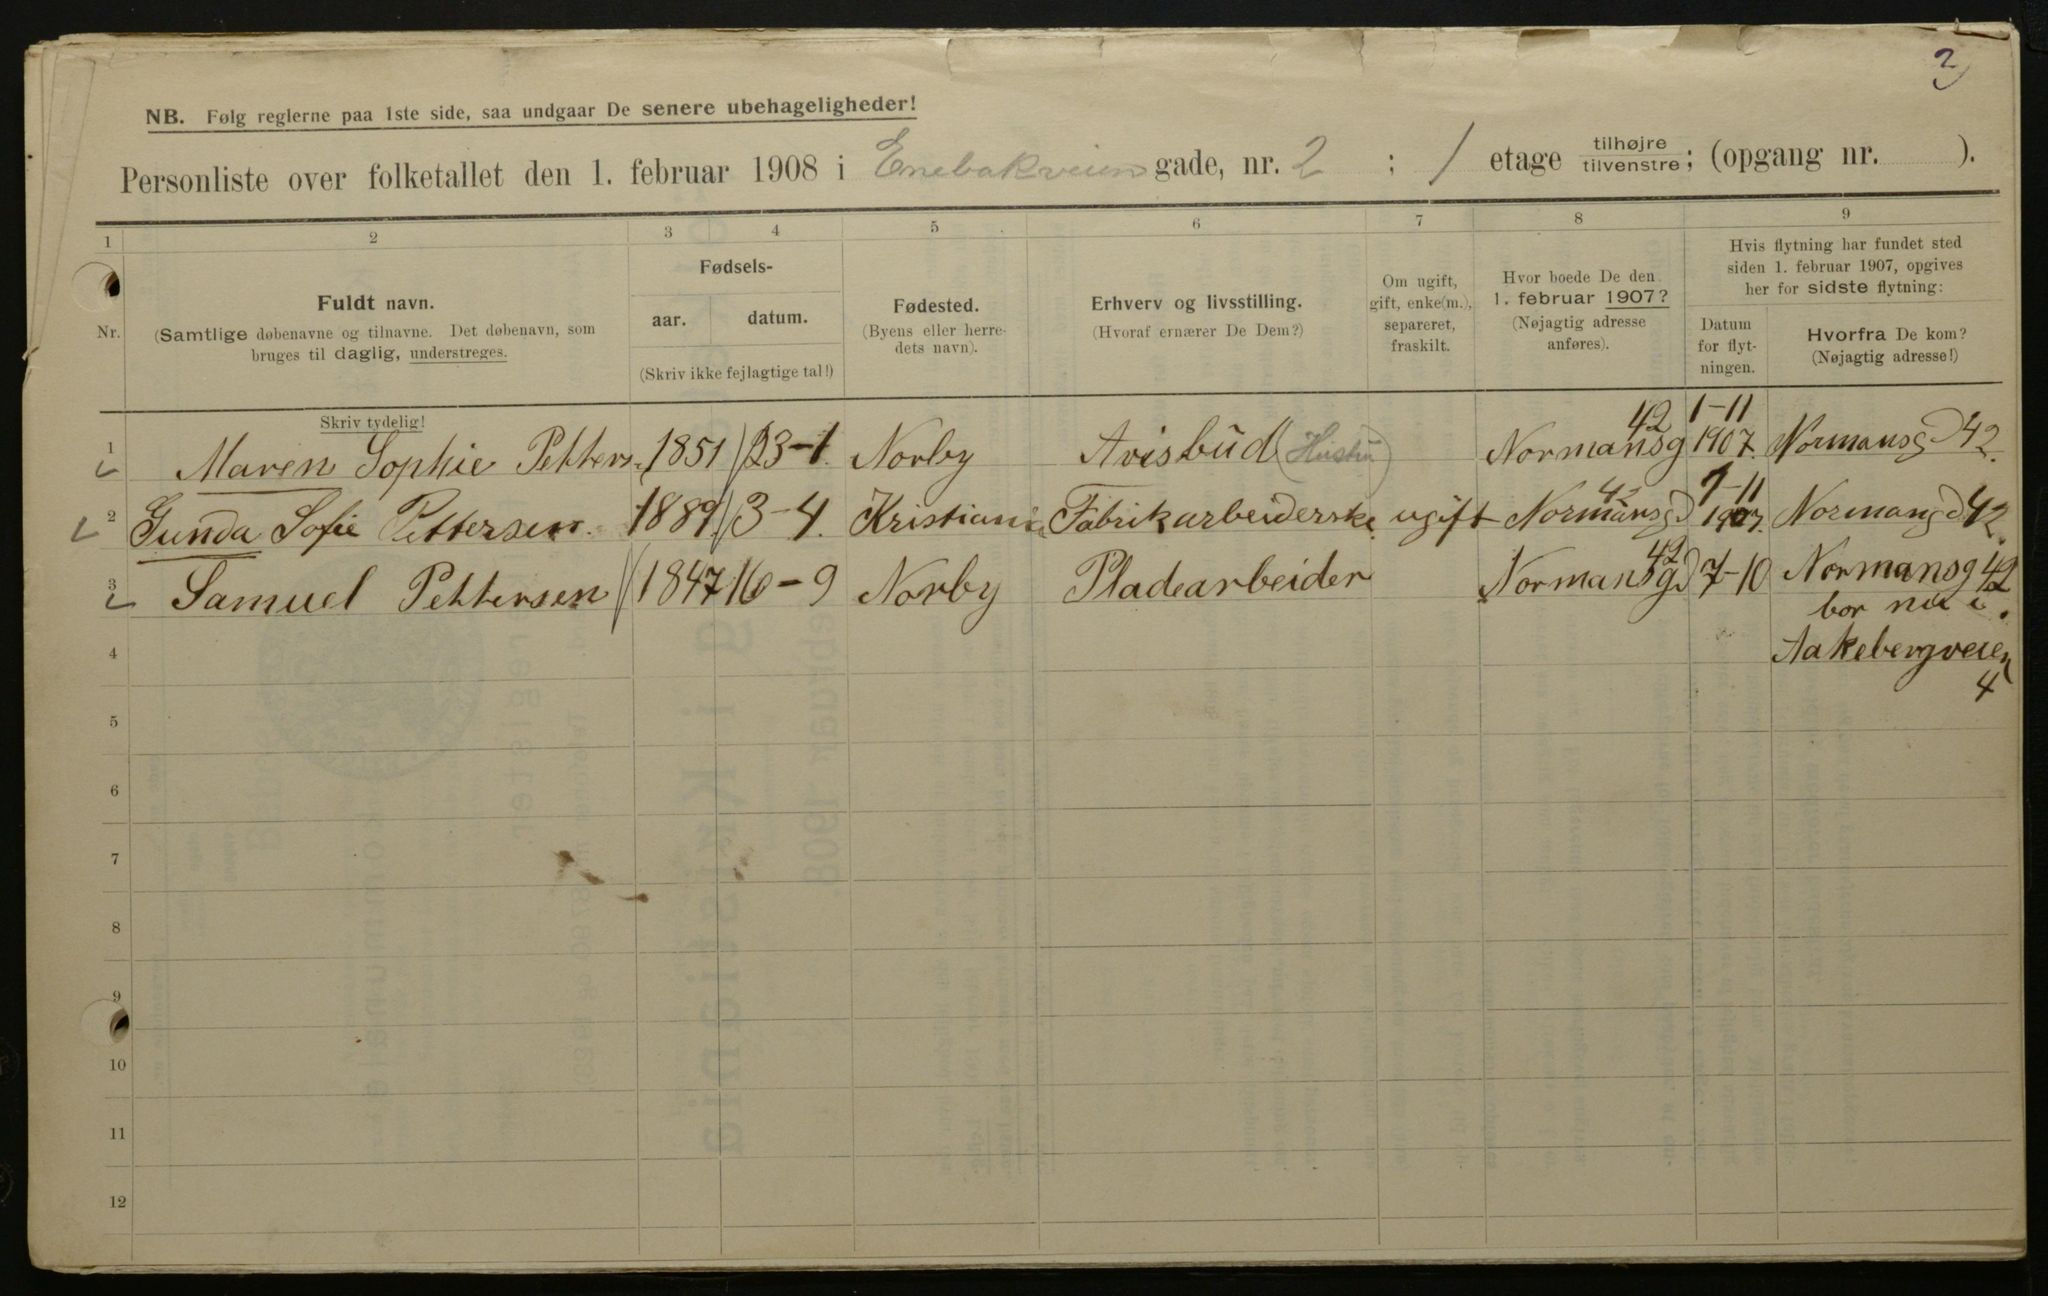 2
NB. Følg reglerne paa 1ste side, saa undgaar De senere ubehageligheder!
Personliste over folketallet den 1. februar 1908 i Enebakveien gade, nr. 2 ; 1 etage tilhøjre tilvenstre; (opgang nr. ).
1 2 3 4 5 6 7 8 9
Nr.
Fuldt navn.
(Samtlige døbenavne og tilnavne. Det døbenavn, som
bruges til daglig, understreges.
Skriv tydelig!
Fødsels-
aar. datum.
(Skriv ikke fejlagtige tal!)
Fødested.
(Byens eller herre-
dets navn).
Erhverv og livsstilling.
(Hvoraf ernærer De Dem?)
Om ugift,
gift, enke(m.),
separeret,
fraskilt.
Hvor boede De den
1. februar 1907?
(Nøjagtig adresse
anføres).
Hvis flytning har fundet sted
siden 1. februar 1907, opgives
her for sidste flytning:
Datum
for flyt-
ningen.
Hvorfra De kom?
(Nøjagtig adresse!)
1 Maren Sophie Petters 1851 23-1. Norby Avisbud (Hustru) Normansg 42 1-11 1907. Normansgd 42.
2 Gunda Sofie Pettersen. 1889 3-4. Kristiania Fabrikarbeiderske ugift Normansgd 42 1-11 1907. Normangd 42.
3 Samuel Pettersen 1847 16-9 Norby Pladearbeider Normansgd 42 7-10 Normansg 42
bor nu i
4 Aakebergveien
4
5
6
7
8
9
10
11
12